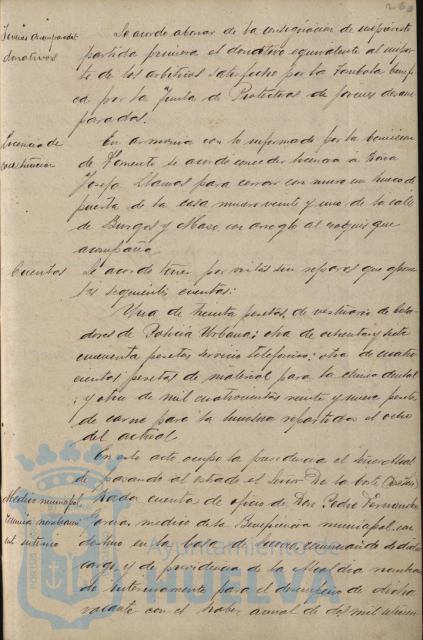 260
Jóvenes desamparados
donativos
Se acordo abonar de la consignacion de imprevistos
partida primera el donativo equivalente al impor-
te de los arbitrios satisfechos por la Tombola benefi-
ca por la Junta de Protectora de Jovenes desam-
parados.
Licencia de
construccion
En armonia con lo informado por la Comision
de Fomento se acordo conceder licencia á Doña
Josefa Llamas para cerrar con muro un hueco de
puerta de la casa numero veinte y uno de la calle
de Burgos y Mazo con arreglo al croquis que
acompaña
Cuentas
Se acordo tener por vistas sin reparos que oponer
las siguientes cuentas:
Una de treinta pesetas, de vestuario de cela-
dores de Policia Urbana; otra de ochenta y siete
cincuenta pesetas servicio telefonico; otra de cuatro-
cientos pesetas de material para la clinica dental
; y otra de mil cuatrocientos veinte y nueve pesetas
de carne para la limosna repartida el ocho
del actual
En este acto ocupo la presidencia el Señor Alcal-
de pasando al estrado el Señor De la Corte
Medico municipal
interino
Dada cuenta de oficio de Don Pedro Fernandez
Garcia, medico de la Beneficencia municipal con
destino en la Casa de Socorro renunciando a dicho
cargo, y de providencia de la Alcaldia nombran-
do interinamente para el desempeño de dicha
vacante con el haber anual de dos mil
Ayuntamiento de
HUELVA